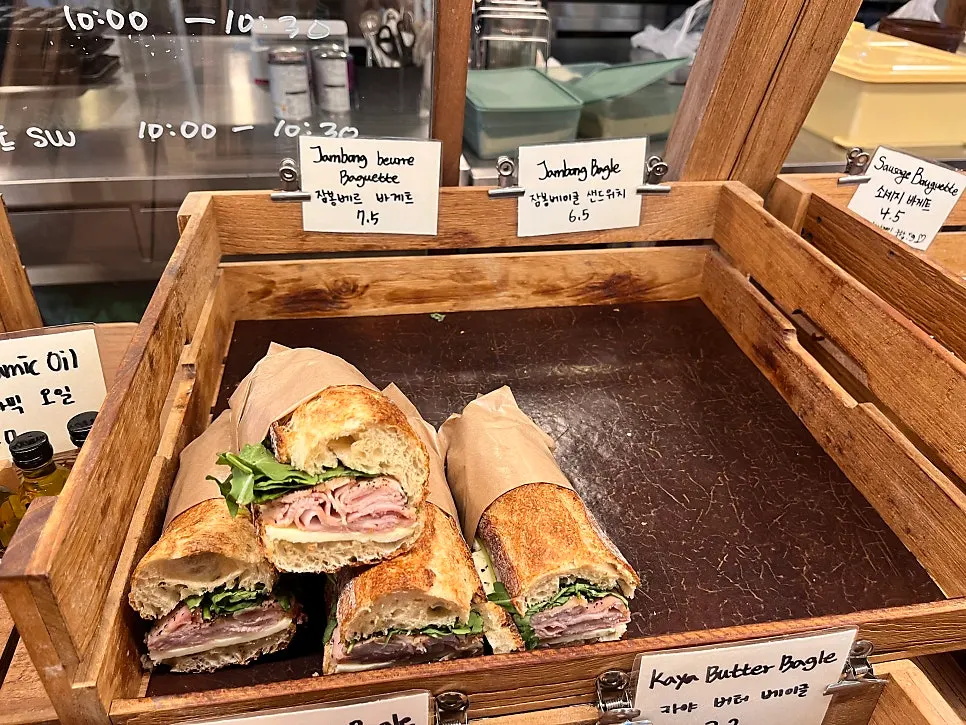 10:00 — 10:30
SW 10:00 — 10:30
Jambong beurre
Baguette
잠봉베르 바게트
7.5
Jambong Bagle
잠봉베이글 샌드위치
6.5
Sausage Bauguette
소세지 바게트
4.5
amic Oil
오일
Kaya Butter Bagle
카야 버터 베이글